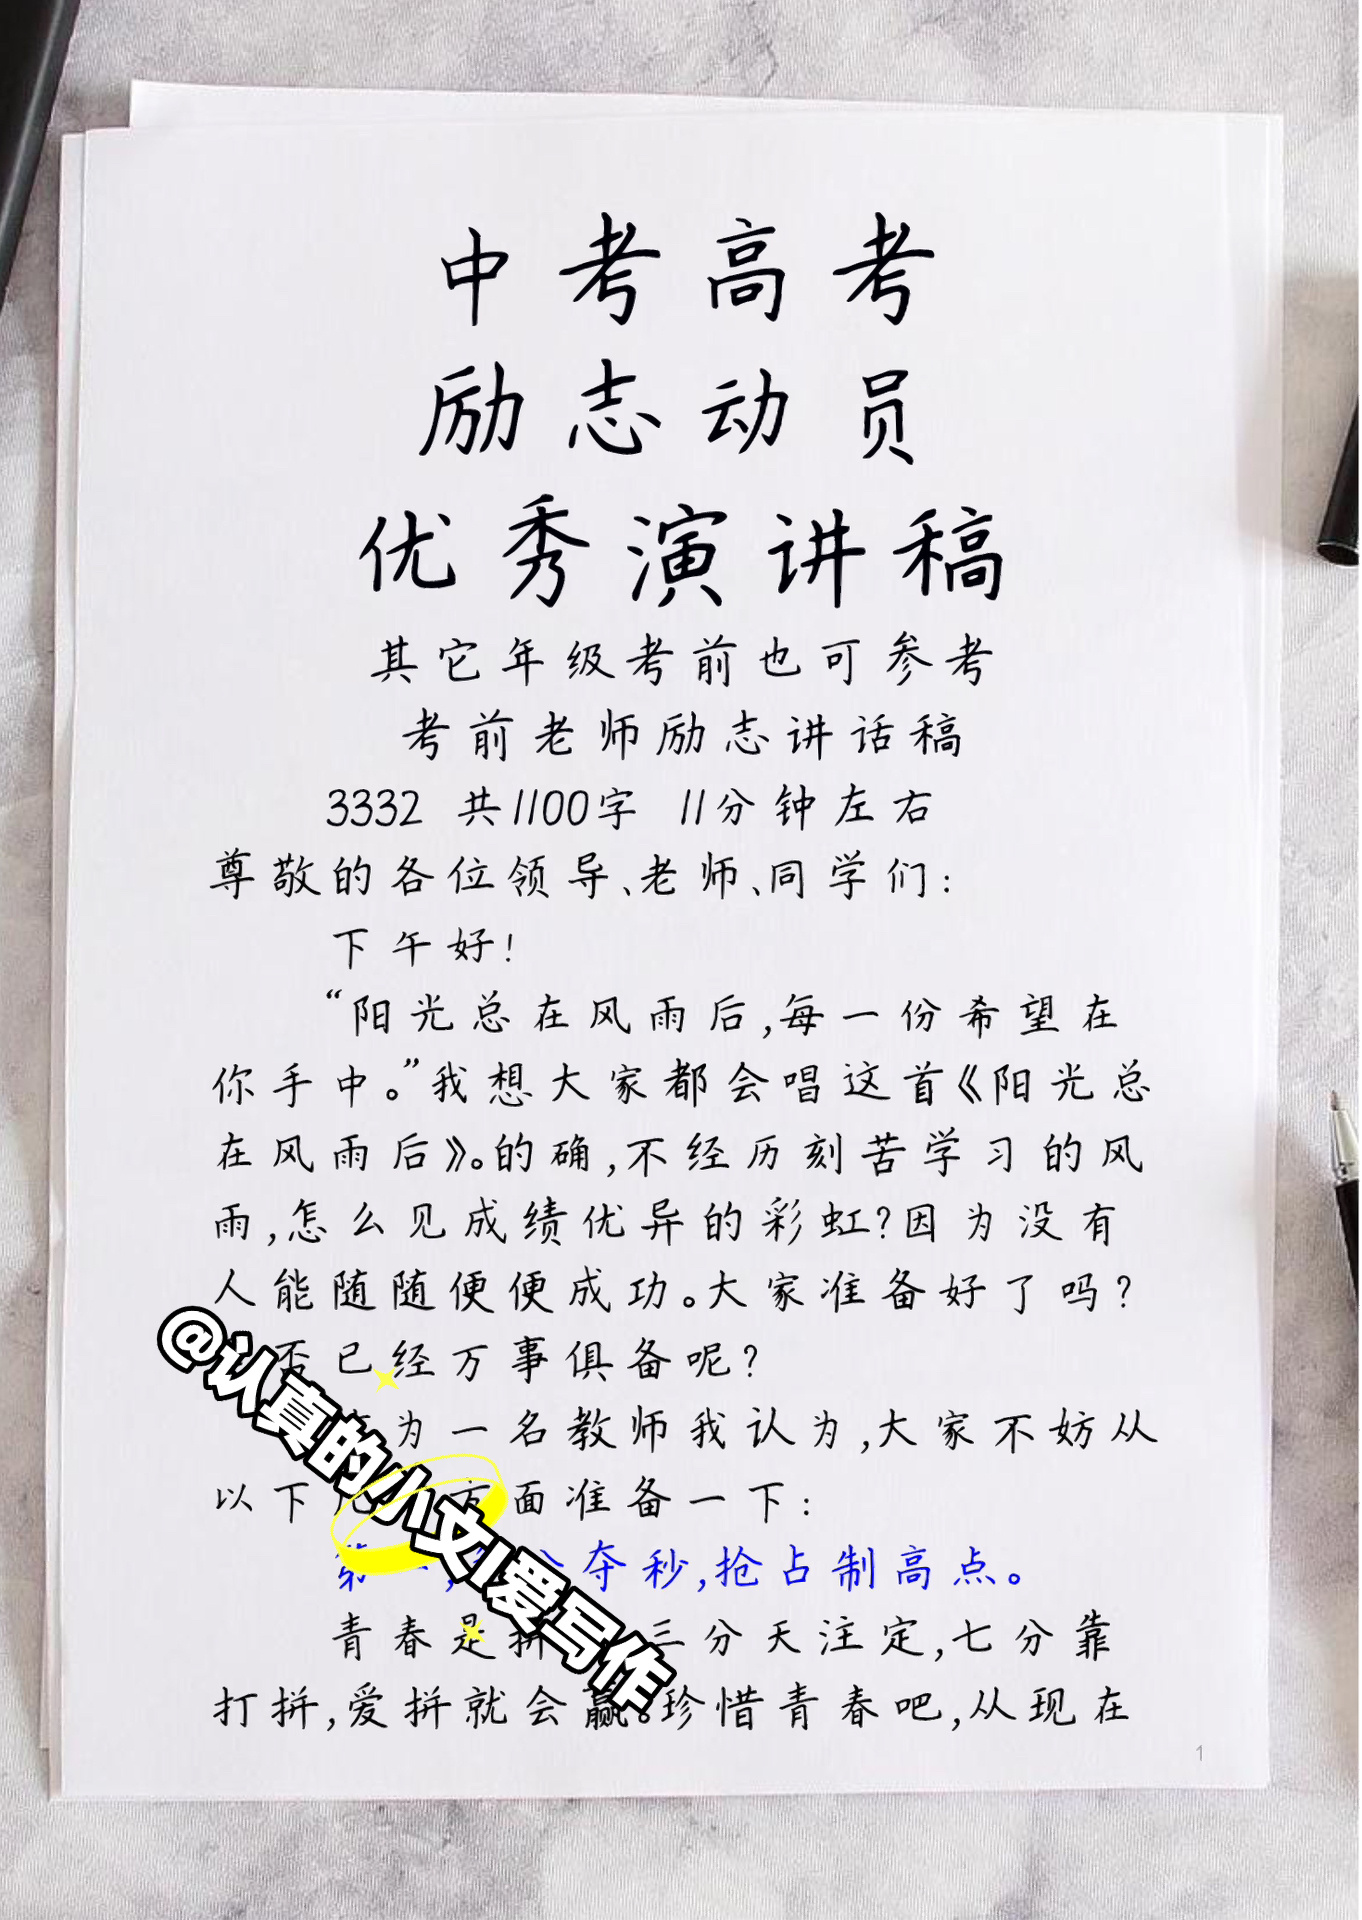 中考高考
励志动员
优秀演讲稿
其它年级考前也可参考
考前老师励志讲话稿
3332 共1100字 11分钟左右
尊敬的各位领导、老师、同学们：
下午好！
“阳光总在风雨后，每一份希望在
你手中。”我想大家都会唱这首《阳光总
在风雨后》。的确，不经历刻苦学习的风
雨，怎么见成绩优异的彩虹？因为没有
人能随随便便成功。大家准备好了吗？
否已经万事俱备呢？
为一名教师我认为，大家不妨从
以下 方面准备一下：
第 夺秒，抢占制高点。
青春是拼 三分天注定，七分靠
打拼，爱拼就会赢。珍惜青春吧，从现在
@认真的小文I爱写作
1